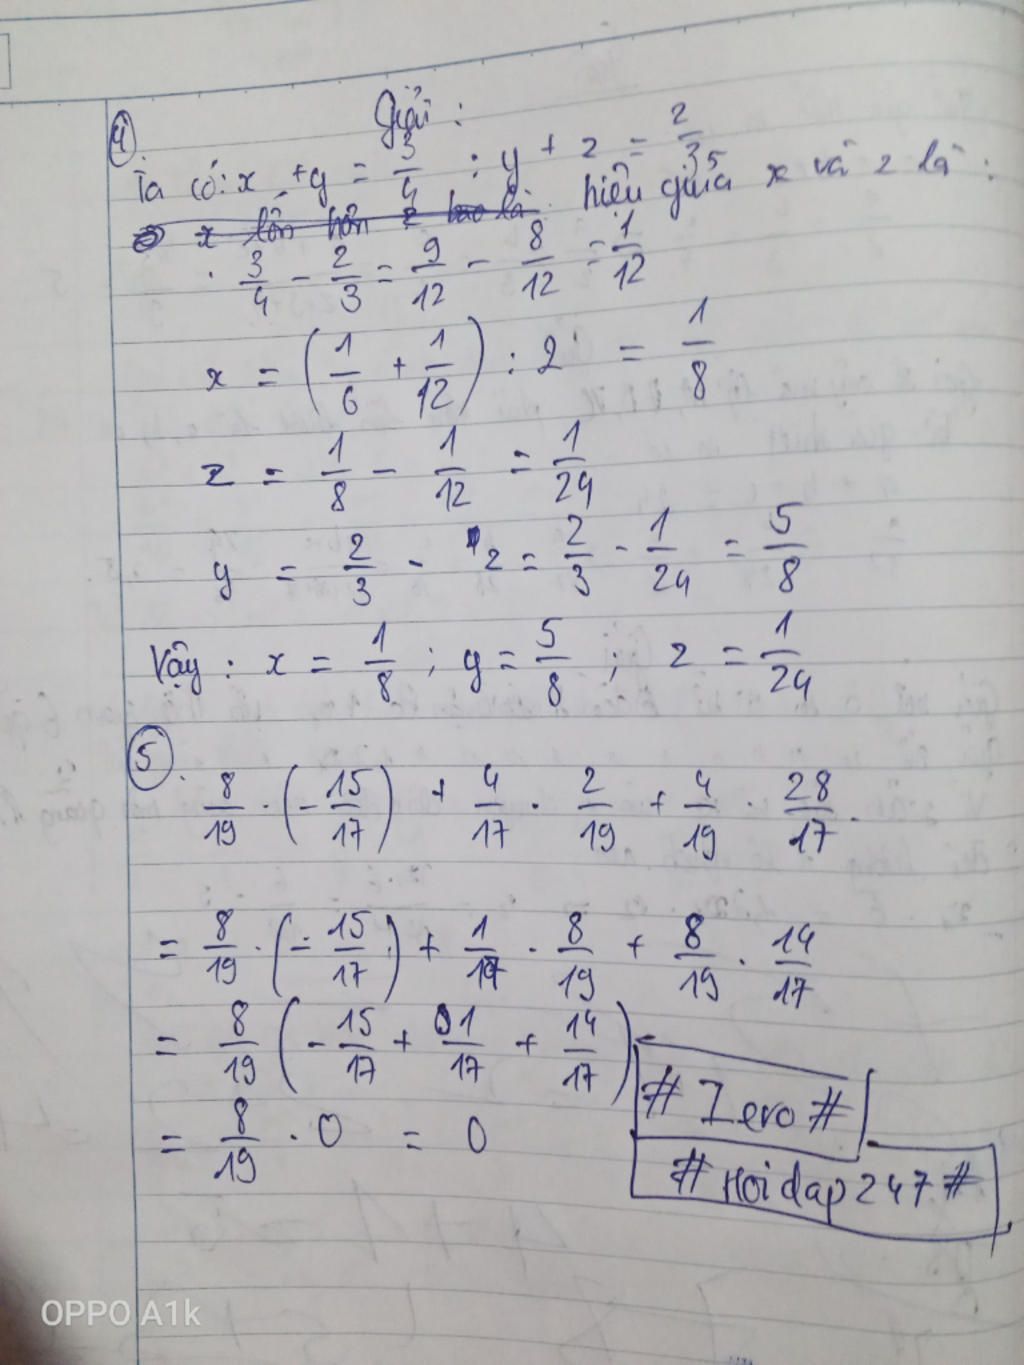 4. Giải :
Ta có: x + y = 3/4 ; y + z = 2/3 hiệu giữa x và z là :
x lớn hơn z là
3/4 - 2/3 = 9/12 - 8/12 = 1/12
x = (1/6 + 1/12) : 2 = 1/8
z = 1/8 - 1/12 = 1/24
y = 2/3 - z = 2/3 - 1/24 = 5/8
Vậy : x = 1/8 ; y = 5/8 ; z = 1/24
5.
8/19 . (-15/17) + 4/17 . 2/19 + 4/19 . 28/17 .
= 8/19 . (-15/17) + 1/17 . 8/19 + 8/19 . 14/17
= 8/19 (-15/17 + 1/17 + 14/17)
= 8/19 . 0 = 0
# Zero #
# Hoidap247 #
OPPO A1k